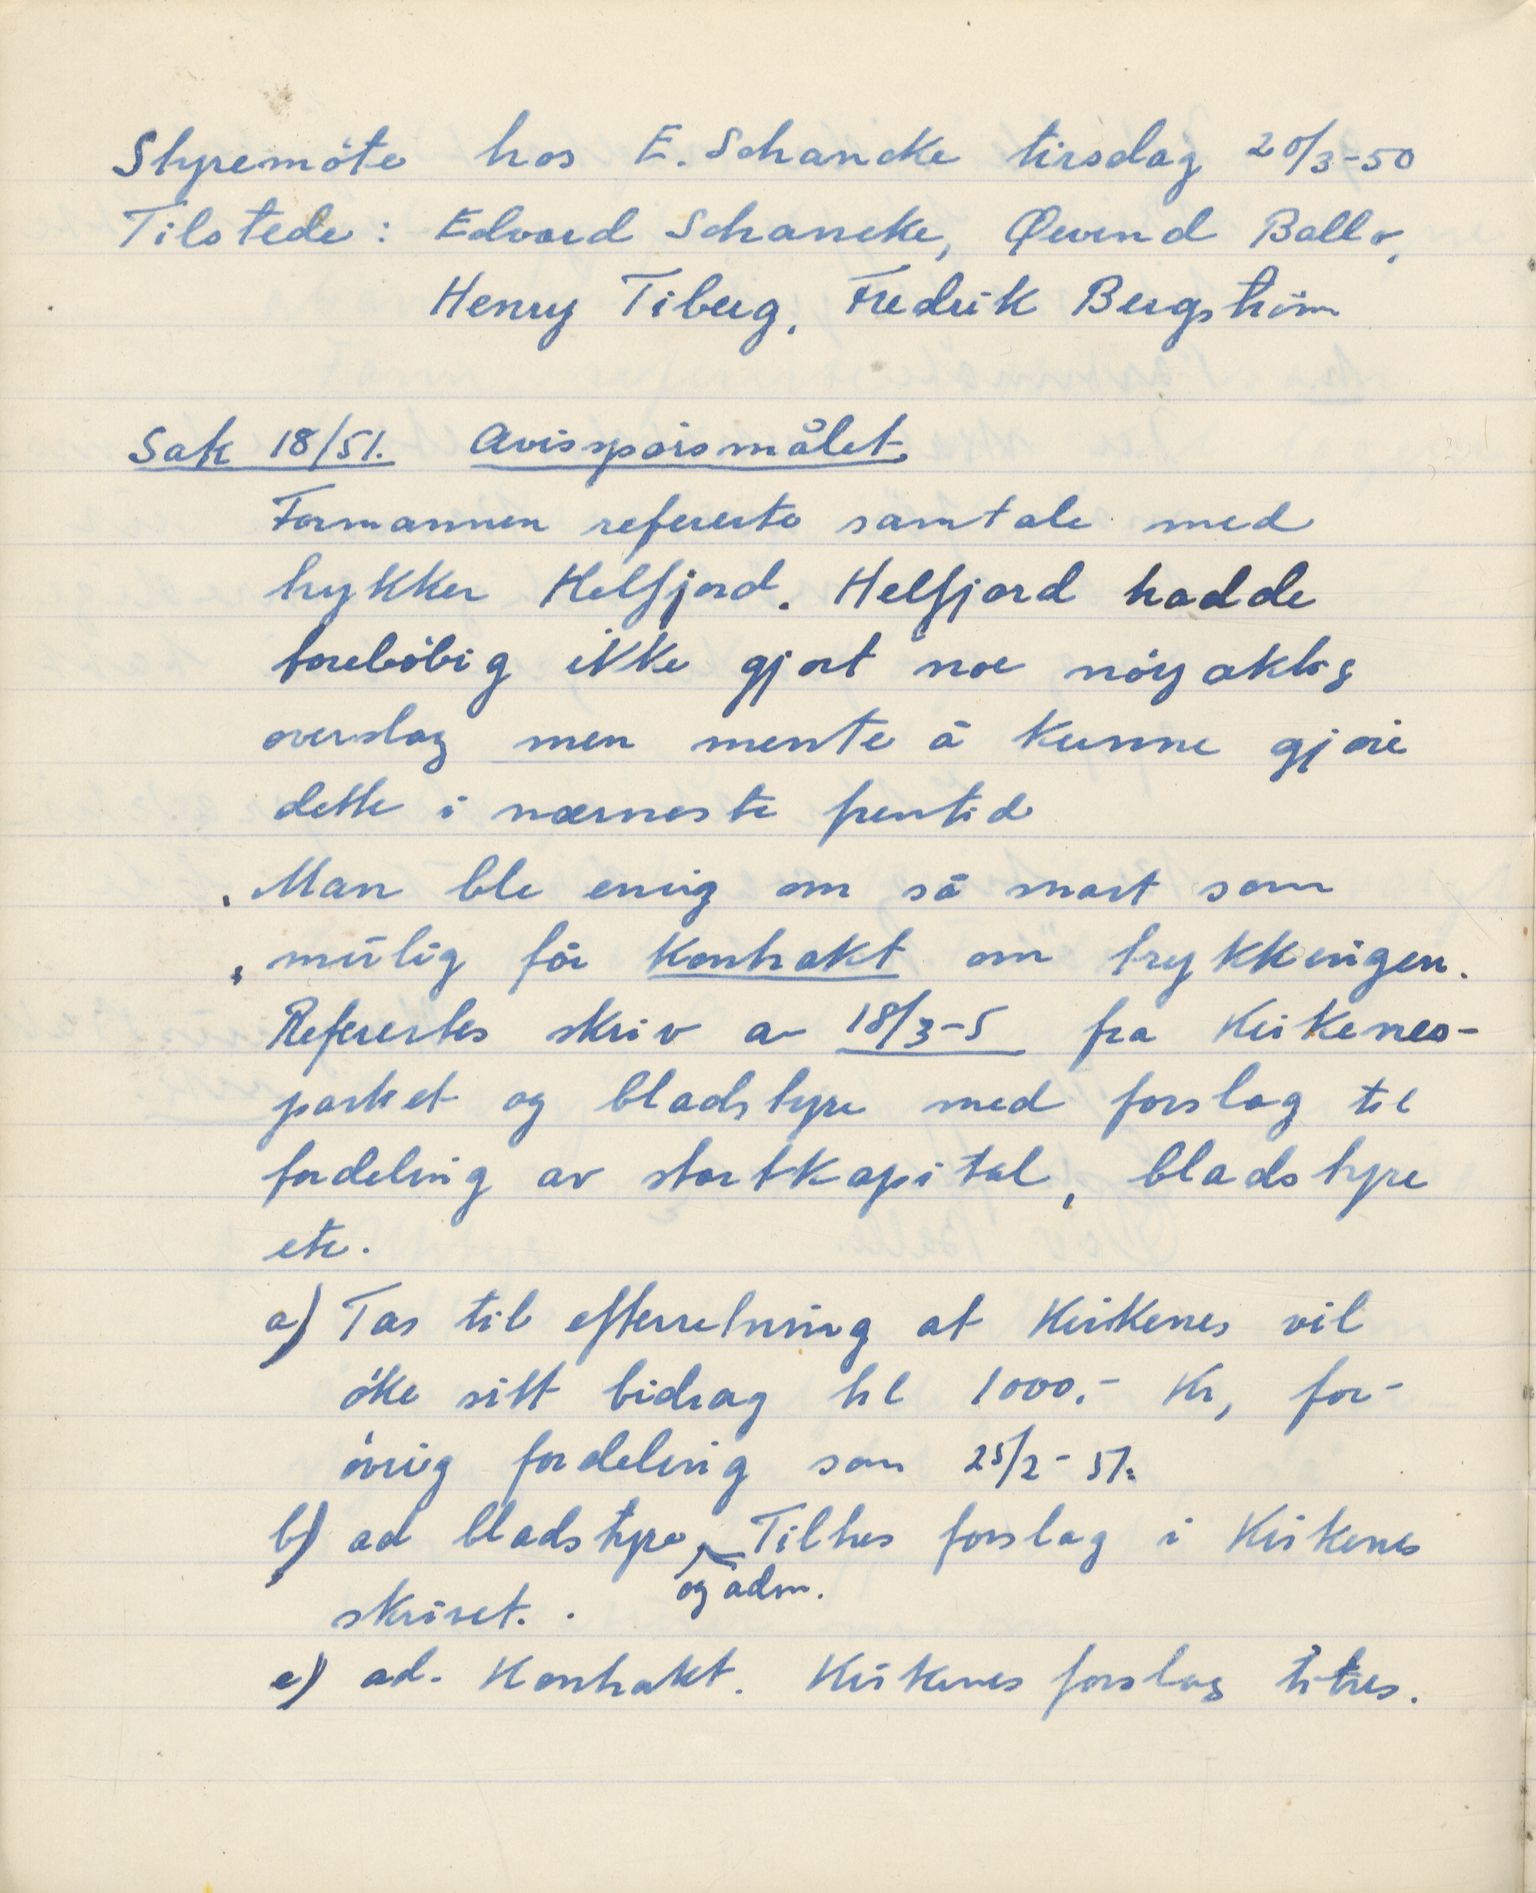 Styremöte hos E. Schancke tirsdag 20/3-50
Tilstede: Edvard Schancke, Øivind Ballo,
Henry Tiberg, Fredrik Bergström
Sak 18/51. Avisspörsmålet.
Formannen refererte samtale med
trykker Helfjord. Helfjord hadde
forelöbig ikke gjort noe nöyaktig
overslag men mente å kunne gjöre
dette i nærmeste fremtid
Man ble enig om så snart som
mulig för kontrakt om trykkingen.
Refertes skriv av 18/3-5 fra Kirkenes-
partiet og bladstyre med forslag til
fordeling av startkapital, bladstyre
etc.
a) Tas til efterretning at Kirkenes vil
öke sitt bidrag til 1000.- Kr, for-
övrig fordeling som 25/2-51.
b) ad bladstyre og adm. Tiltres forslag i Kirkenes
skrivet.
c) ad. Kontrakt. Kirkenes forslag titres.